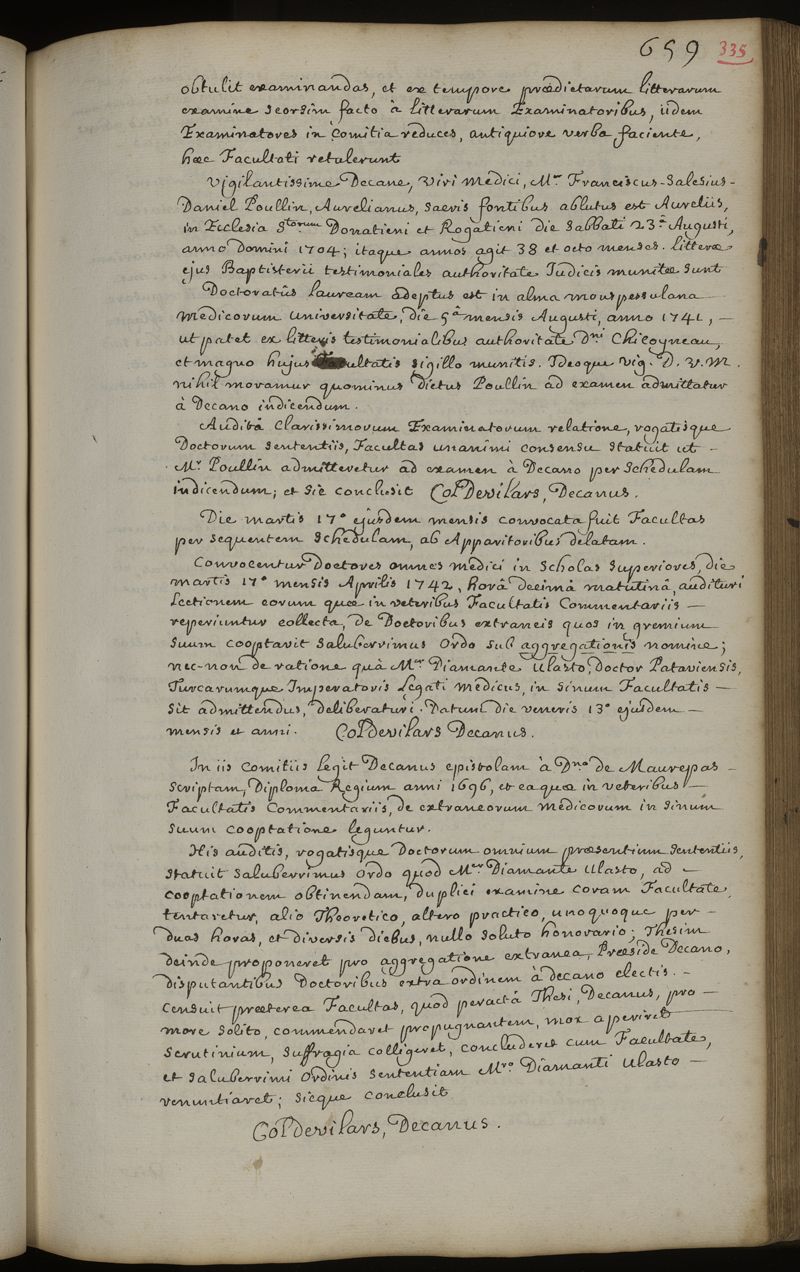 659 335
obtulit examinandas, et ex tempore prædictarum litterarum
examine seorsim facto à litterarum Examinatoribus, iidem
Examinatores in Comitia reduces, antiquiore verba faciente,
hæc Facultati retulerunt
Vigilantissime Decane, Viri Medici, Mer Franciscus-Salesius-
Daniel Poullin, Aurelianus, sacris fontibus ablutus est Aureliis,
in Ecclesia Storum Donatieni et Rogatieni die Sabbati 23a Augusti,
anno Domini 1704; itaque annos agit 38 et octo menses. litteræ
ejus Baptisterii testimoniales authoritate Judicis munitæ sunt
Doctoratûs lauream adeptus est in alma monspessulana
medicorum universitate, die 5a mensis Augusti, anno 1741, —
ut patet ex litteris testimonialibus authoritate Dni Chicoyneau,
et magno hujus Facultatis sigillo munitis. Ideoque Vig. D. V. M.
nihil moramur quominus dictus Poullin ad examen admittatur
à Decano indicendum.
Auditâ Clarissimorum Examinatorum relatione, rogatisque
Doctorum sententiis, Facultas unanimi consensu statuit ut -
Mr Poullin admitteretur ad examen à Decano per schedulam
indicendum; et sic conclusit Col Devilars, Decanus.
Die martis 17a ejusdem mensis convocata fuit Facultas
per sequentem schedulam, ab Apparitoribus delatam.
Convocentur Doctores omnes medici in Scholas superiores, die
martis 17a mensis Aprilis 1742, horâ decimâ matutinâ, audituri
lectionem eorum quæ in veteribus Facultatis Commentariis —
reperiuntur collecta, de Doctoribus extraneis quos in gremium
suum cooptavit saluberrimus ordo sub aggregationis nomine;
nec-non de ratione quâ Mer Diamante Ulasto, Doctor Pataviensis,
Turcarumque Imperatoris Legati medicus, in sinum Facultatis —
sit admittendus, deliberaturi. Datum die veneris 13a ejusdem —
mensis et anni. Col Devilars Decanus.
In iis Comitiis legit Decanus epistolam à Dno de Maurepas -
scriptam, Diploma Regium anni 1696, et ea quæ in veteribus —
Facultatis Commentariis, de extraneorum medicorum in sinum
suum cooptatione leguntur.
His auditis, rogatisque Doctorum omnium præsentium sententiis,
statuit saluberrimus ordo quod Mer Diamante Ulasto, ad —
cooptationem obtinendam, duplici examine coram Facultate
tentaretur, alio Theoretico, altero practico, unoquoque per -
duas horas, et diversis diebus, nullo soluto honorario; Thesim
deinde proponeret pro aggregatione extranea, Præside Decano,
disputantibus Doctoribus extra ordinem à decano electis. -
Censuit præterea Facultas, quod peractâ Thesi, Decanus, pro —
more solito, commendaret propugnantem, mox aperiret
scrutinium, suffragia colligeret, concluderet cum Facultate,
et saluberrimi ordinis sententiam Mro Diamanti Ulasto —
renuntiaret; sicque conclusit
Col Devilars, Decanus.